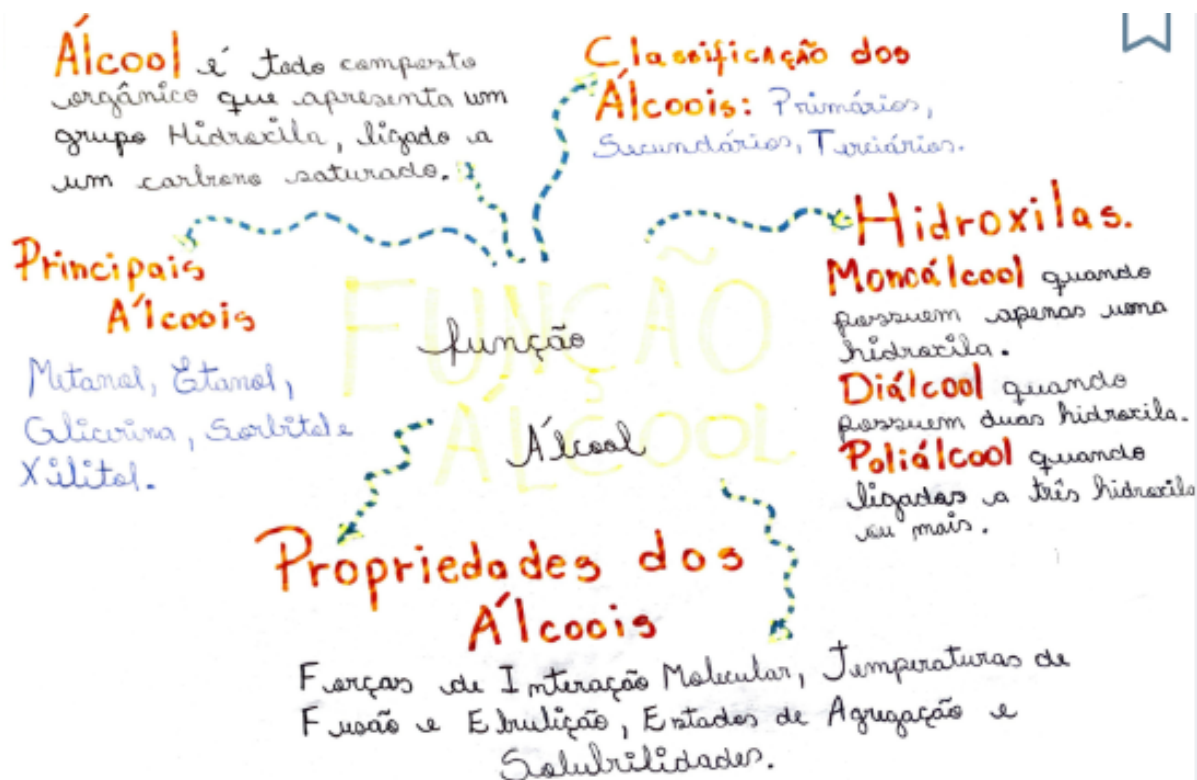 Álcool é todo composto
orgânico que apresenta um
grupo Hidroxila, ligado a
um carbono saturado.
Classificação dos
Álcoois: Primários,
Secundários, Terciários.
Principais
Álcoois
Metanol, Etanol,
Glicerina, Sorbitol e
Xilitol.
FUNÇÃO
ÁLCOOL
função
Álcool
Hidroxilas.
Monoálcool quando
possuem apenas uma
hidroxila.
Diálcool quando
possuem duas hidroxila.
Poliálcool quando
ligados a três hidroxila
ou mais.
Propriedades dos
Álcoois
Forças de Interação Molecular, Temperaturas de
Fusão e Ebulição, Estados de Agregação e
Solubilidades.